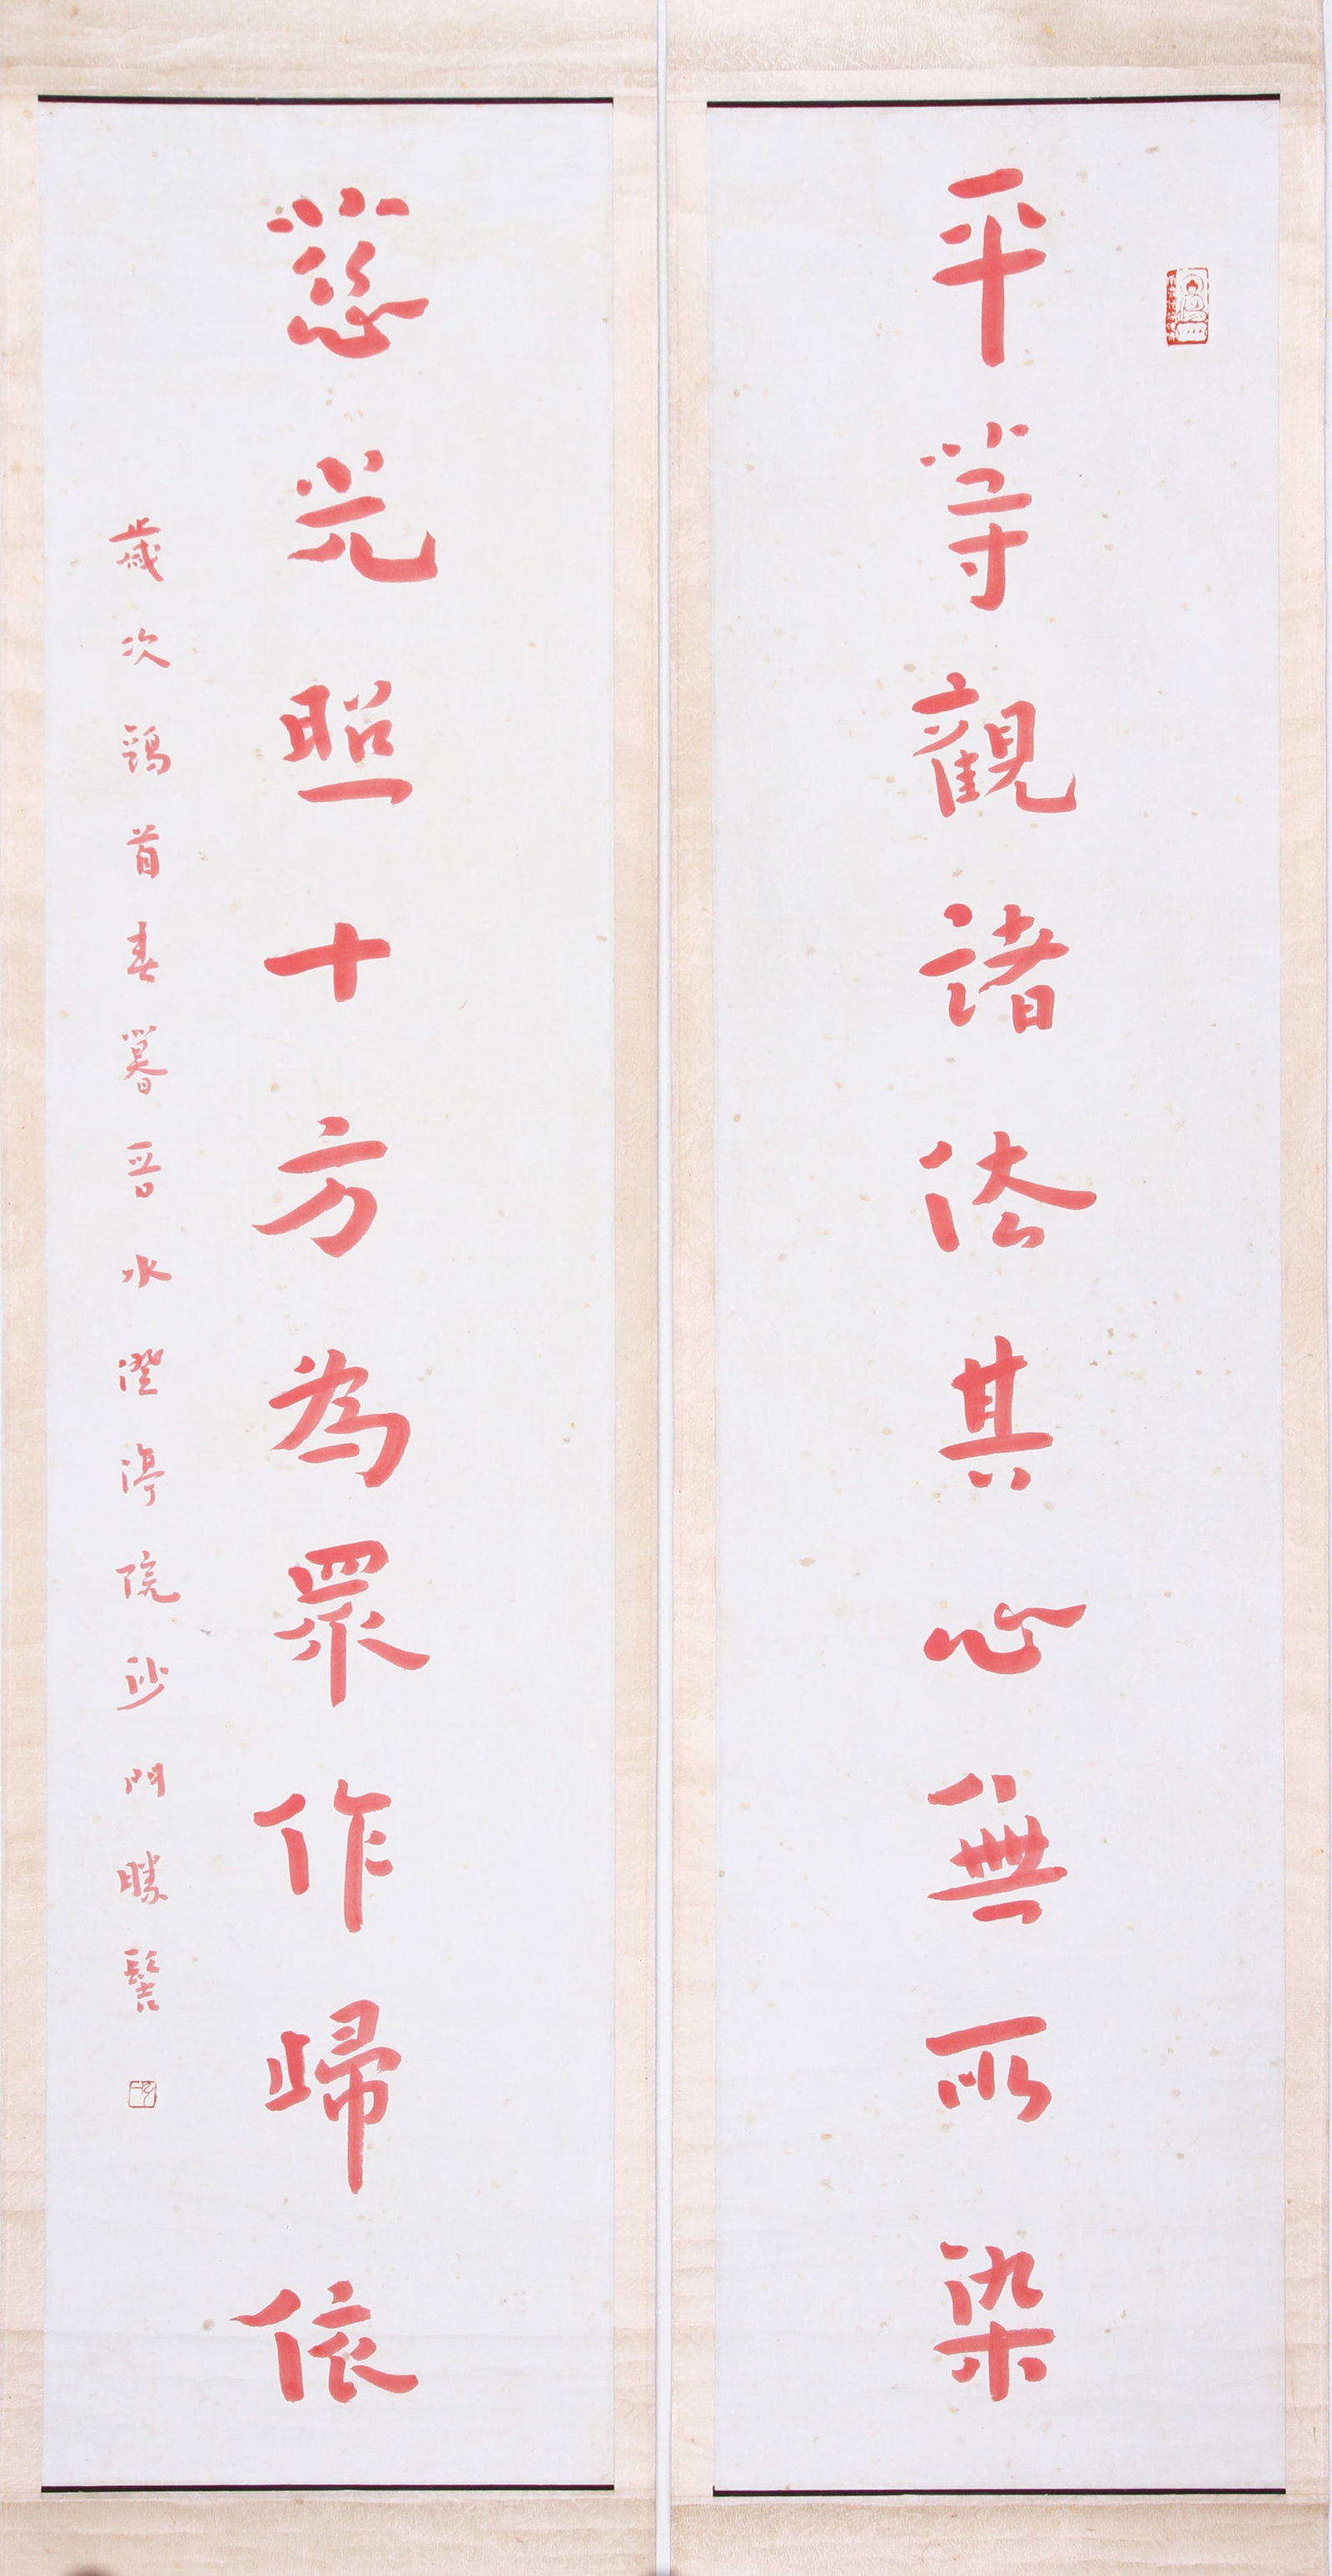 平等觀諸法其心無所染
慈光照十方為眾作歸依
歲次鶉首春暮晉水澄渟院沙門勝髻